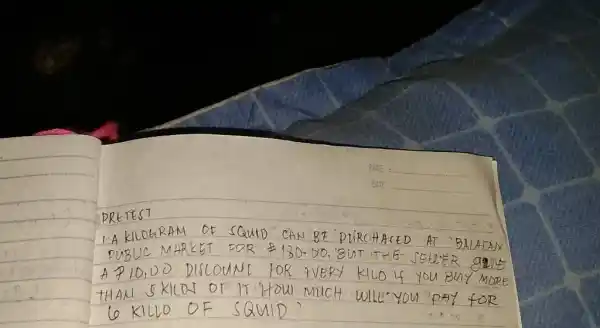 DATE:
PRETEST
1. A KILOGRAM OF SQUID CAN BE PURCHACED AT BALATAN
PUBLIC MARKET FOR ₱ 130.00, BUT THE SELLER gives
A ₱10.00 DISCOUNT FOR EVERY KILO if YOU BUY MORE
THAN 5 KILOS OF IT HOW MUCH WILL YOU PAY FOR
6 KILLO OF SQUID?